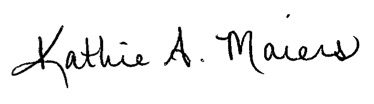 Kathie A. Maiers